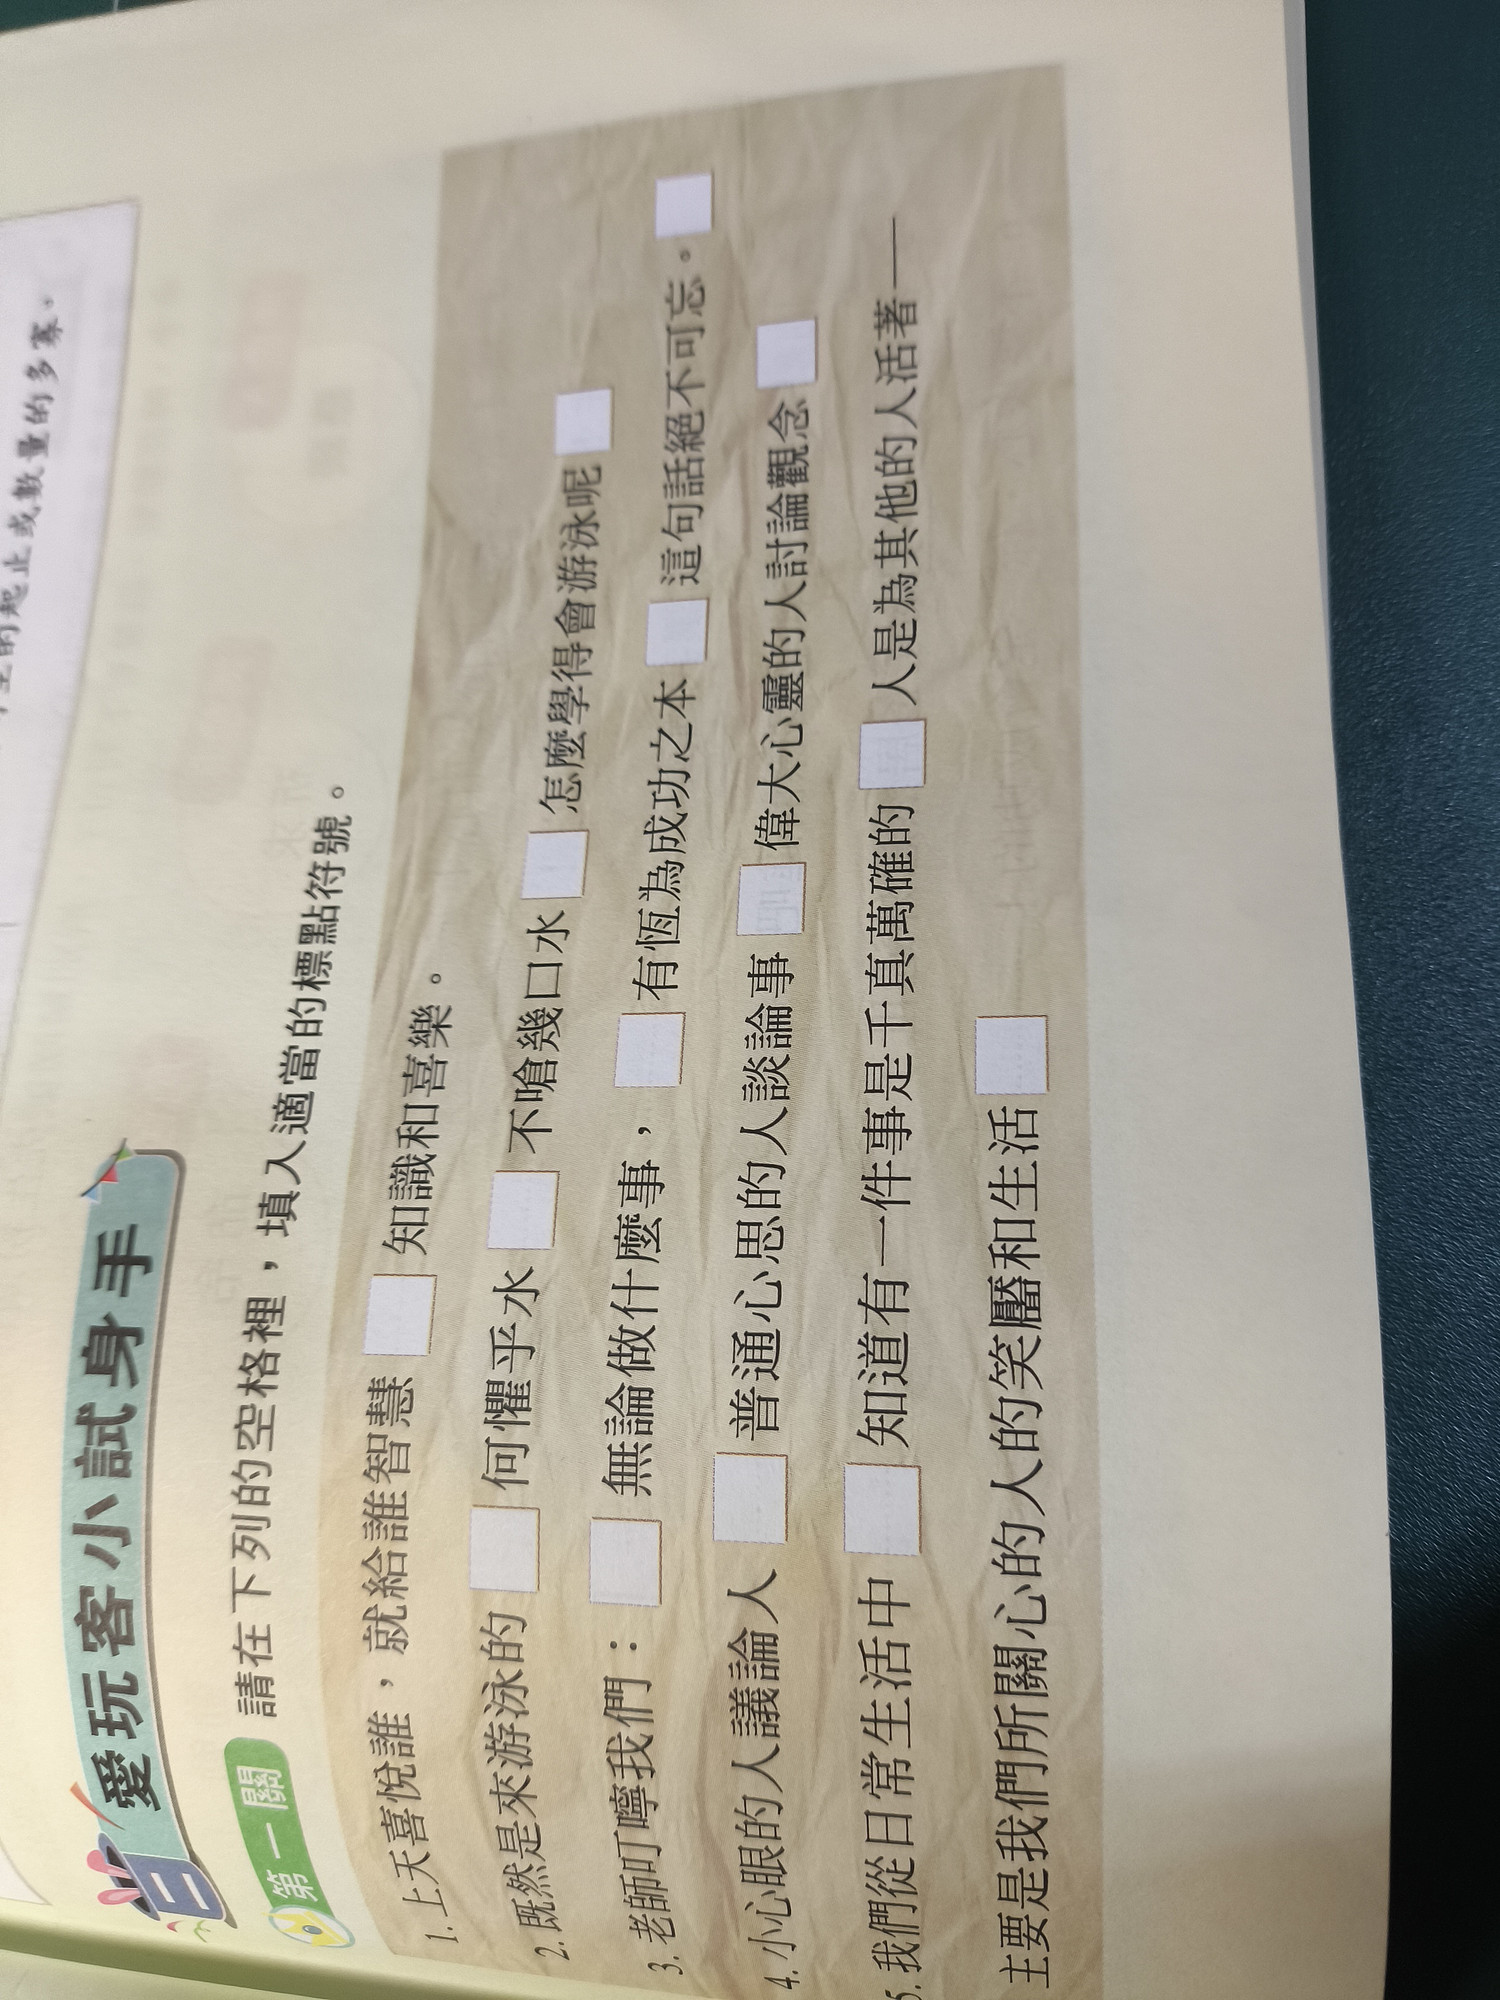 生的起止或數量的多寡。
愛玩客小試身手
第一關 請在下列的空格裡，填入適當的標點符號。
1. 上天喜悅誰，就給誰智慧□知識和喜樂。
2. 既然是來游泳的□何懼乎水□不嗆幾口水□怎麼學得會游泳呢□
3. 老師叮嚀我們：□無論做什麼事，□有恆為成功之本□這句話絕不可忘。□
4. 小心眼的人議論人□普通心思的人談論事□偉大心靈的人討論觀念□
5. 我們從日常生活中□知道有一件事是千真萬確的□人是為其他的人活著——
主要是我們所關心的人的笑靨和生活□